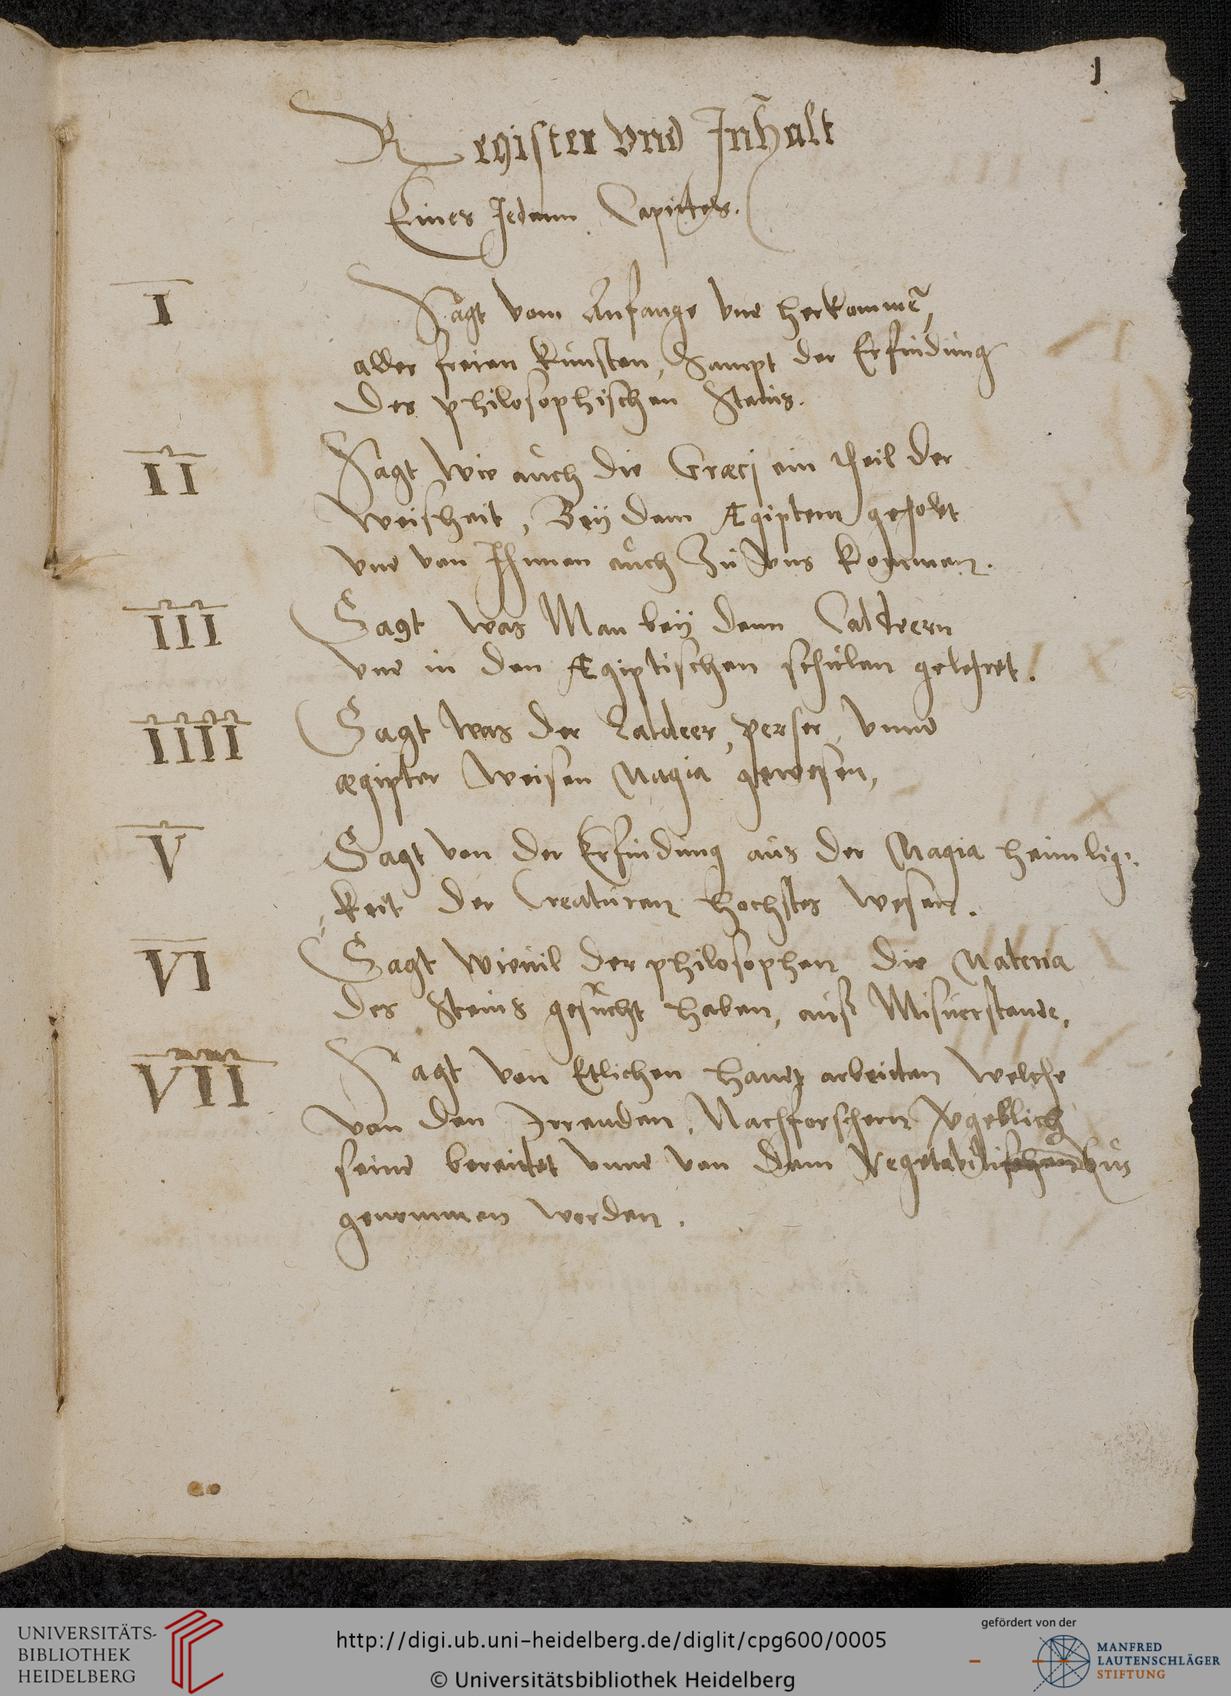 1
Register vnd Inhalt
Eines Jedenn Capittels.
I
Sagt vom Anfange vnd herkommen
aller freien kunsten, Sampt der Erfindung
des philosophischen Steins.
II
Sagt wie auch die Græcj ein theil der
Weisheit, Beÿ den Ægiptern geholet
vnd von Ihnnen auch Zu vns kommen.
III
Sagt was Man beÿ denn Caldeern
vnd in den Ægiptischen schulen gelehret.
IIII
Sagt was der Caldeer, perser vnnd
ægipter Weisen Magia gewesen,
V
Sagt von der Erfindung aus der Magia heimlig-
keit der Creaturen hochstes Wesen.
VI
Sagt wieuil der philosophen die Materia
des Steins gesucht haben, auß Misuerstande,
VII
Sagt von Etlichen handt arbeitten welche
von den Irrenden, Nachforschern
seind bereittet vnnd von den
genommen werden.
UNIVERSITÄTS-
BIBLIOTHEK
HEIDELBERG
http://digi.ub.uni-heidelberg.de/diglit/cpg600/0005
© Universitätsbibliothek Heidelberg
gefördert von der
MANFRED
LAUTENSCHLÄGER
STIFTUNG